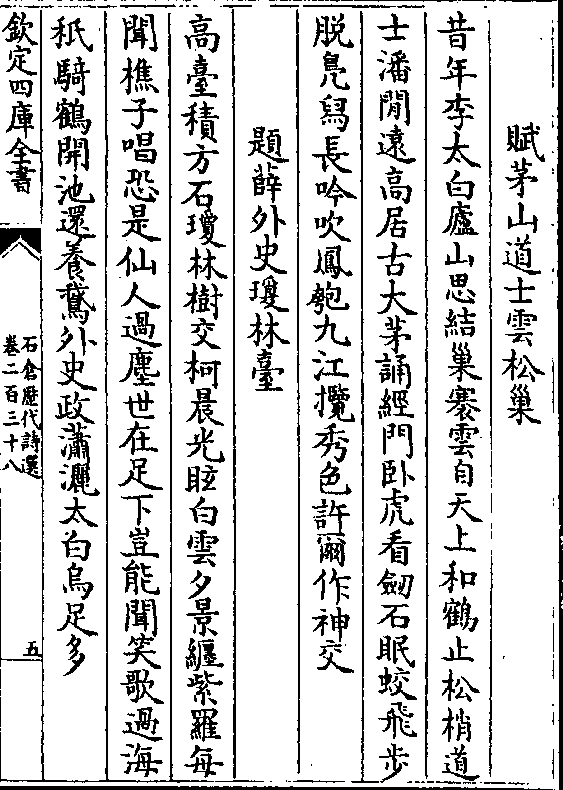 賦茅山道士雲松巢
昔年李太白廬山思結巢褰雲自天上和鶴止松梢道
士潘閒遠高居古大茅誦經門卧虎看劒石眠蛟飛步
脱鳬舄長吟吹鳳匏九江攬秀色許爾作神交
題薛外史瓊林臺
高臺積方石瓊林樹交柯晨光眩白雲夕景纒紫羅每
聞樵子唱恐是仙人過塵世在足下豈能聞笑歌過海
秖騎鶴開池還養鵞外史政瀟灑太白烏足多
欽定四庫全書
石倉歴代詩選
卷二百三十八
五